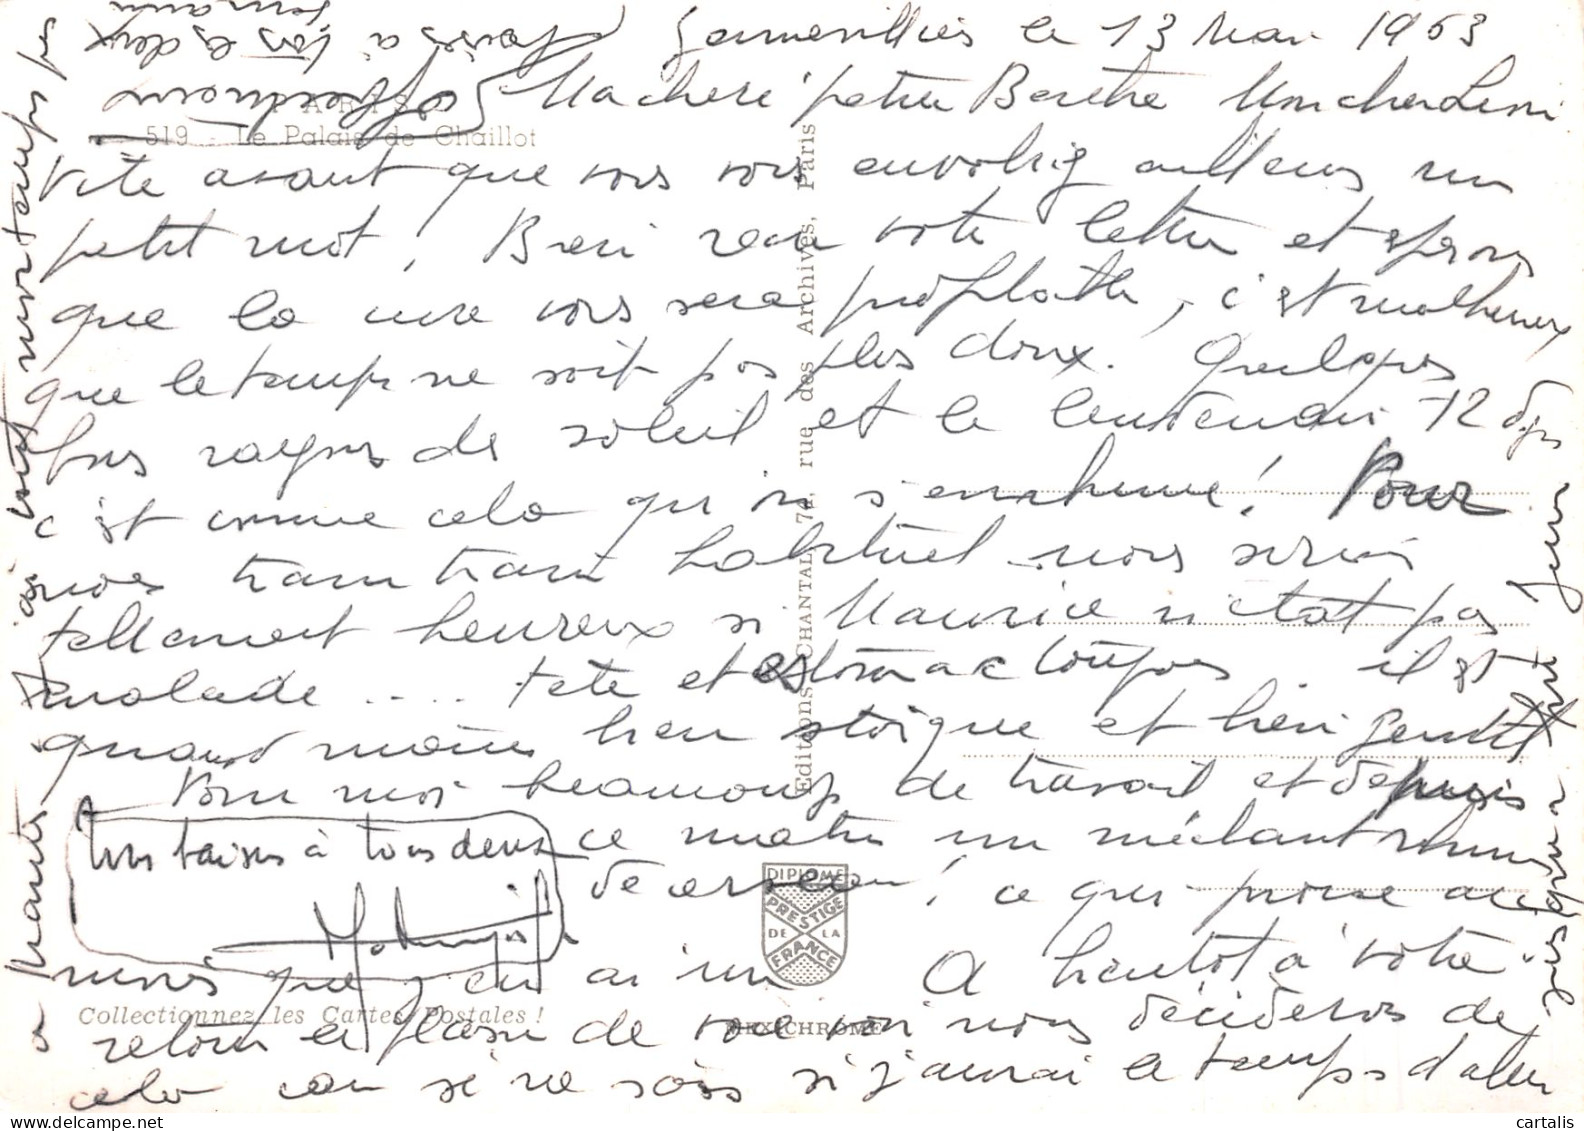 Gennevilliers le 13 Mai 1963
Ma chère petite Berthe Mon cher
PARIS
519 - Le Palais de Chaillot
Vite avant que vous vous ailleurs un
petit mot, Bien reçu votre lettre et
que la cure vous sera profitable, c'est malheureux
que le temps ne soit pas plus doux. Quelques
bons rayons de soleil et le lendemain
c'est comme cela qu'on s'enrhume! Pour
nous train train habituel nous
tellement heureux si Maurice n'était pas
malade .... tête et estomac toujours il est
quand même bien stoïque et bien gentil
Pour moi beaucoup de travail et depuis
ce matin un méchant rhume
de cerveau! ce qui prouve
Bons baisers à tous deux
mois que j'en ai un A bientôt à votre
retour et plaisir de vous voir nous déciderons de
cela car je ne sais si j'aurai le temps d'aller
jusqu'à
a Mantes
votre temps
baisers à tous les deux
Editions CHANTAL, 74, rue des Archives, Paris
DIPLOME PRESTIGE DE LA FRANCE
Collectionnez les Cartes Postales !
MEXICHROME
cartalis